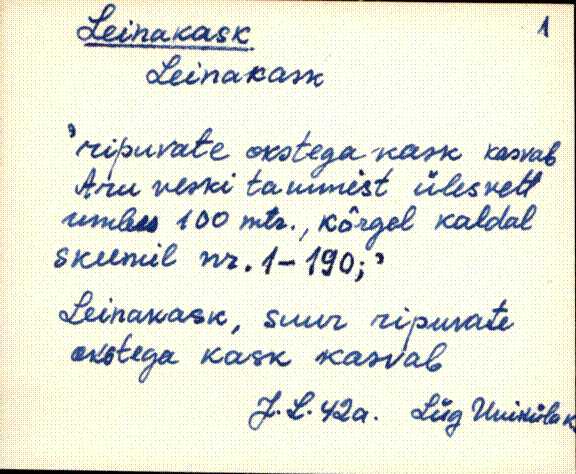 Leinakask 1
Leinakask
'ripuvate okstega kask kasvab
Aru veski tammist ülesvett
umbes 100 mtr., kõrgel kaldal
skeemil nr. 1-190;'
Leinakask, suur ripuvate
okstega kask kasvab
J. L. 42a. Lüg Uniküla k.